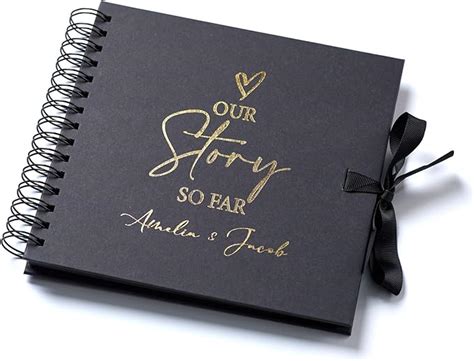 OUR
Story
SO FAR
Amelia & Jacob